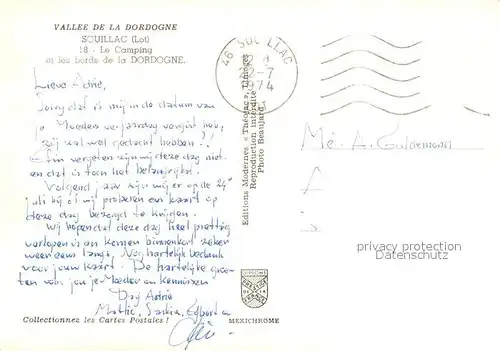 VALLEE DE LA DORDOGNE
SOUILLAC (Lot)
18 - Le Camping
et les bords de la DORDOGNE.
Lieve Adrie,
Sorry dat ik mij in de datum van
je Moeders verjaardag vergist heb,
zij zal wel gedacht hebben!!
Enfin vergeten zijn wij deze dag niet
en dat is toch het belangrijkst.
Volgend jaar zijn wij er op de 24e
juli bij of wij proberen een kaart op
deze dag bezorgd te krijgen.
Wij hopen dat deze dag heel prettig
verlopen is en komen binnenkort zeker
weer eens langs. Nog hartelijk bedankt
voor jouw kaart. De hartelijke groe-
ten voor jou je Moeder en kennissen
Dag Adrie
Mattie, Saskia, Egbert en
46 SOUILLAC
22-7
1974
LOT
Editions Modernes « Théojac », Limoges
Reproduction interdite
Photo Beaujard
Mé. A.
privacy protection
Datenschutz
Collectionnez les Cartes Postales !
MEXICHROME